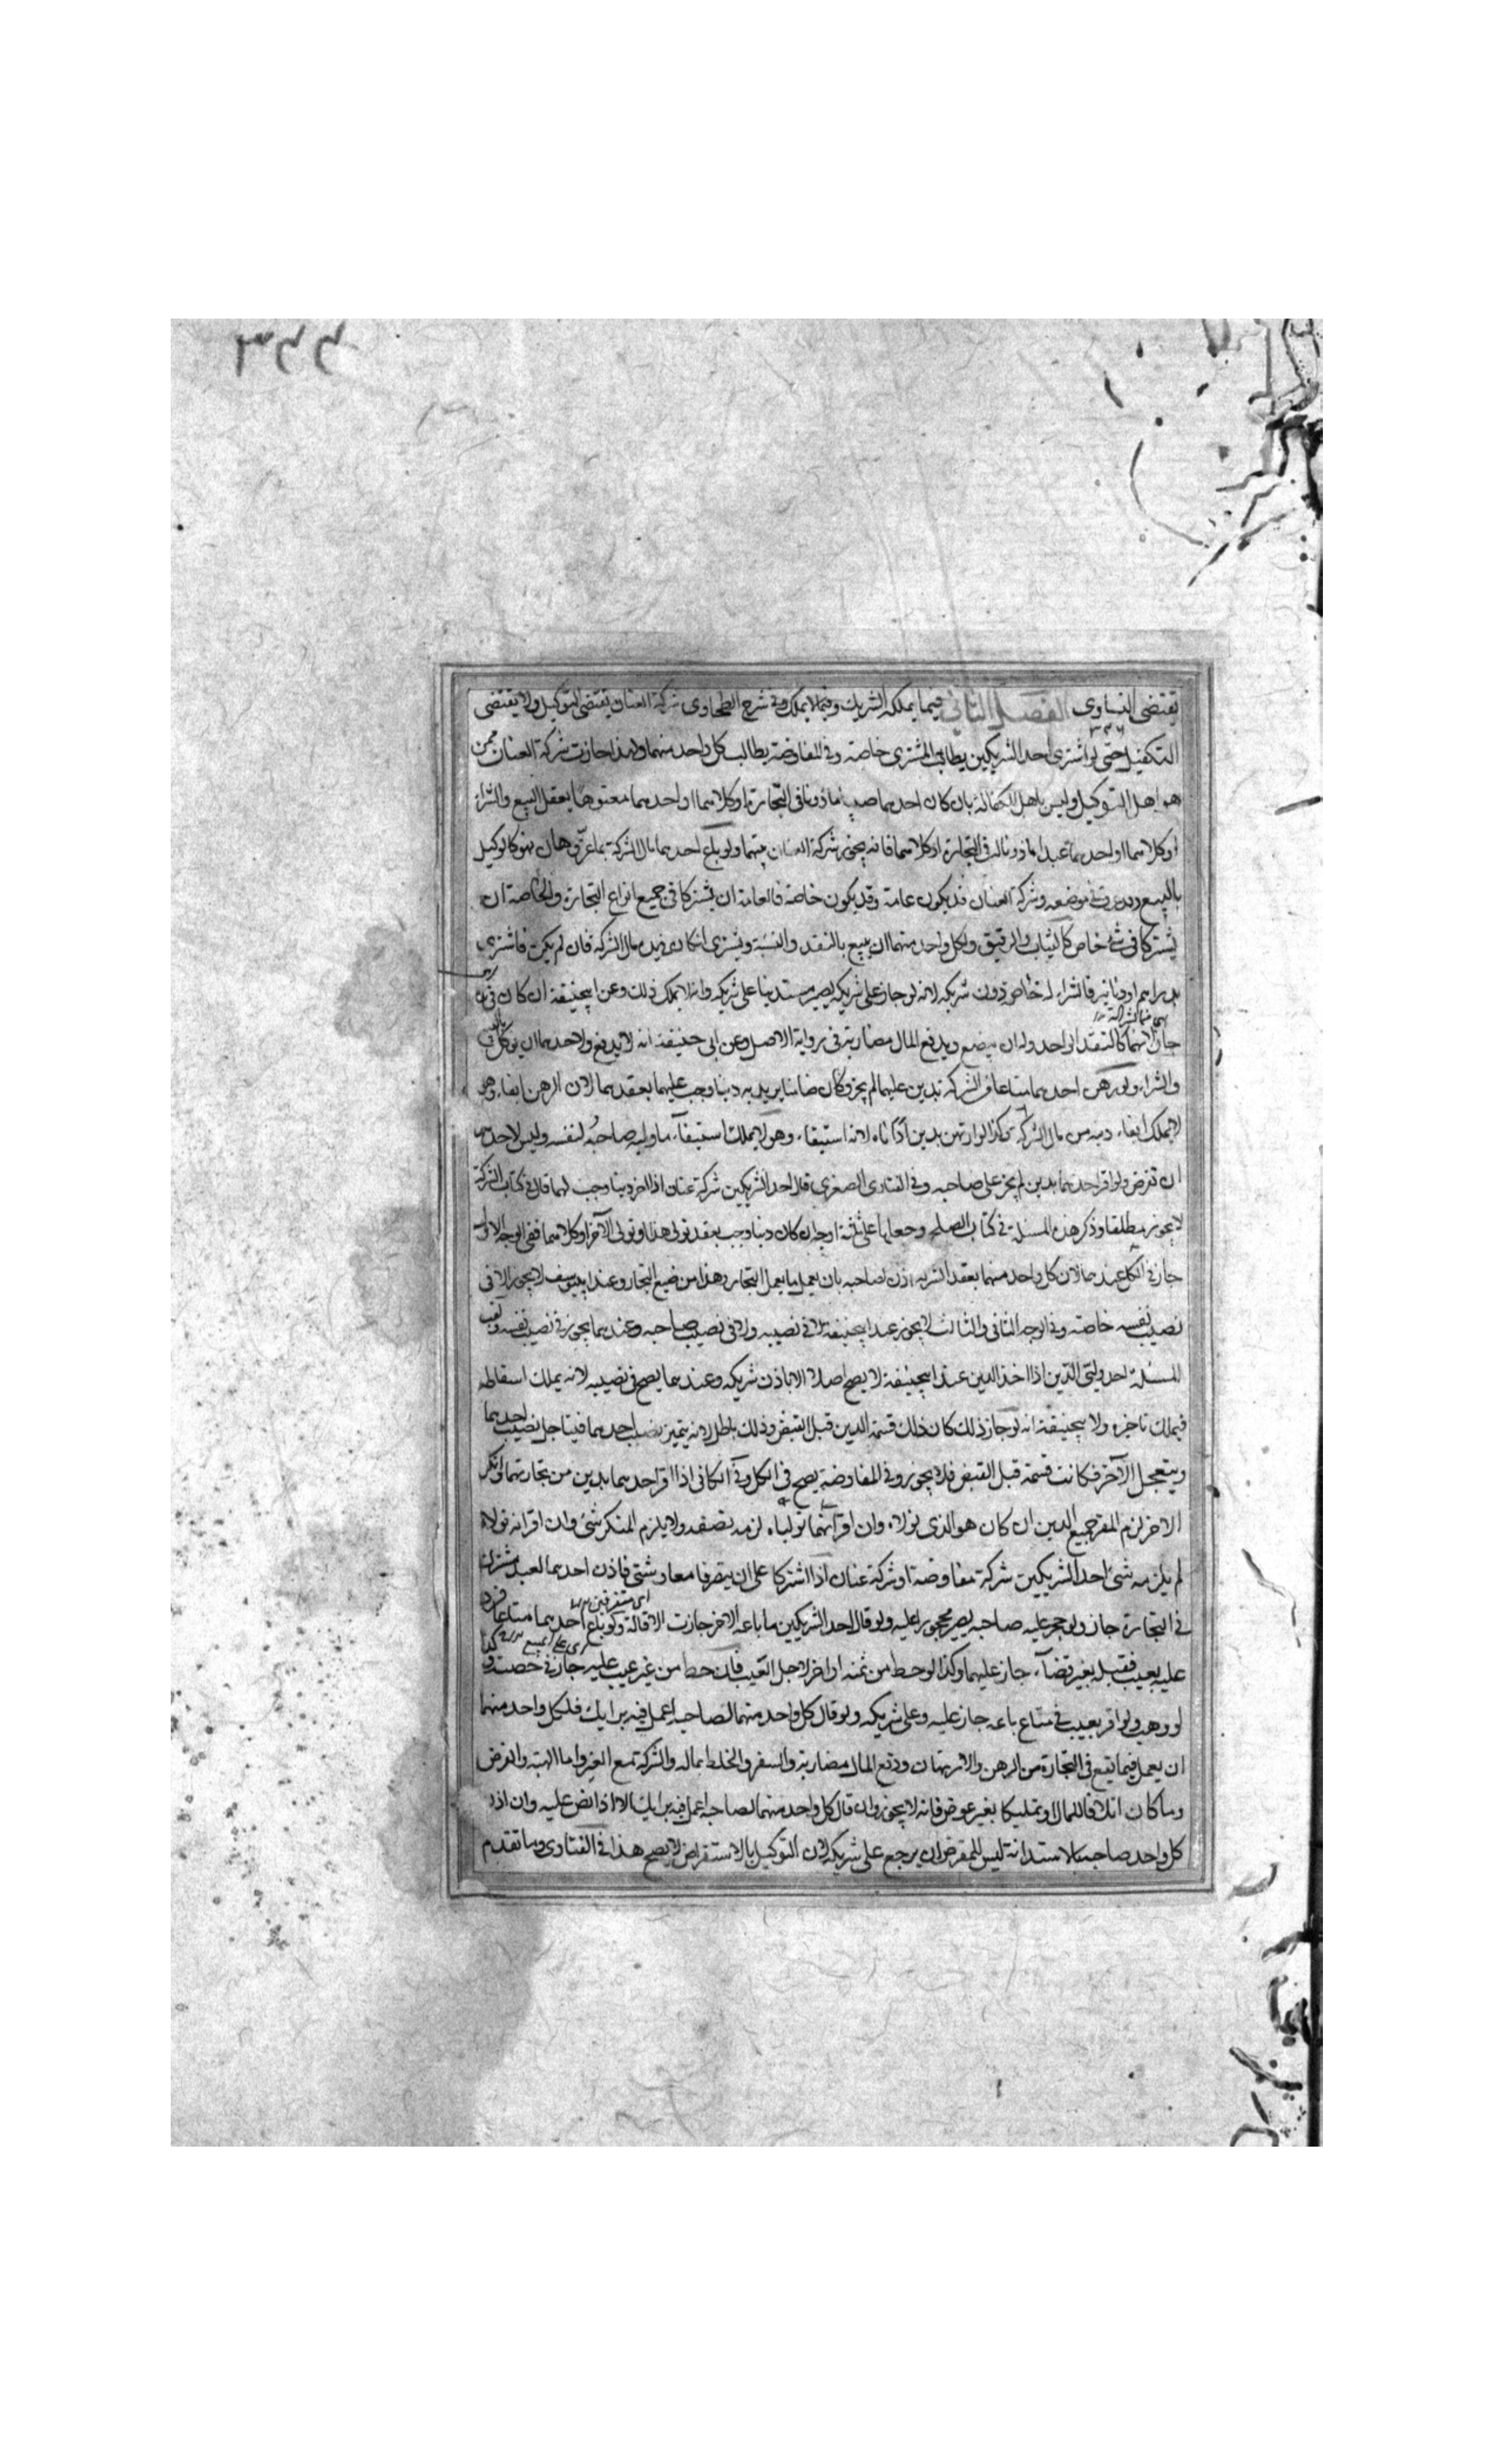 تقتضى التساوى الفصل الثانى فيما يملكه الشريك وفيما لا يملك وفى شرح الطحاوى شركة العنان يقتضى التوكيل ولا يقتضى
التكفيل حتى لو اشترى احد الشريكين يطالب المشترى خاصة وفى المفاوضة يطالب كل واحد منهما ولهذا جازت شركة العنان ممن
هو اهل التوكيل وليس باهل الكفالة بان كان احدهما صبيا ماذونا فى التجارة او كلاهما او احدهما معتوها يعقل البيع والشراء
او كلاهما او احدهما عبدا ماذونا له فى التجارة او كلاهما فانه يجوز شركة العنان بينهما ولو باع احدهما مال الشركة بما عز وهان فهو كالوكيل
بالبيع فى موضعه وشركة العنان قد يكون عامة وقد يكون خاصة فالعامة ان يشتركا فى جميع انواع التجارة والخاصة ان
يشتركا فى شئ خاص كالثياب والرقيق ولكل واحد منهما ان يبيع بالنقد والنسية ويشترى ان كان فى يده مال الشركة فان لم يكن فاشترى
بدراهم او دنانير فالشراء له خاص دون شريكه لانه لو جاز على شريكه يصير مستدينا على شريكه وانه لا يملك ذلك وعن ابيحنيفة ان كان فى يده
جاز لانهما كالنقد الواحد وله ان يبضع ويدفع المال مضاربة فى رواية الاصل وعن ابى حنيفة انه لا يدفع ولاحدهما ان يوكل بالبيع
والشراء ولو رهن احدهما متاعا من الشركة بدين عليهما لم يجز وكان ضامنا يريد به دينا وجب عليهما بعقدهما لان الرهن ايفاء وهو
لا يملك ايفاء دينه من مال الشركة وكذا لو ارتهن بدين اداناه لانه استيفاء وهو لا يملك استيفاء ما وليه صاحبه لنفسه وليس لاحدهما
ان تقرض ولو اقر احدهما بدين لم يجز على صاحبه وفى الفتاوى الصغرى قال احد الشريكين شركة عنان اذا اخر دينا وجب لهما قال فى كتاب الشركة
لا يجوز مطلقا وذكر هذه المسئلة فى كتاب الصلح وجعلها على ثلثة اوجه ان كان دينا وجب بعقد تولى هذا او تولى الآخر او كلاهما ففى الوجه الاول
جاز فى الكل عندهما لان كل واحد منهما بعقد الشركة اذن لصاحبه بان يعمل ما يعمل التجار وهذا من صنيع التجار وعند ابييوسف لا يجوز الا فى
نصيب نفسه خاصة وفى الوجه الثانى والثالث لا يجوز عند ابيحنيفة لا فى نصيبه ولا فى نصيب صاحبه وعندهما يجوز فى نصيب نفسه ولقب
المسئلة احد وليى الدين اذا اخذ الدين عند ابيحنيفة لا يصح اصلا الا باذن شريكه وعندهما يصح فى نصيبه لانه يملك اسقاطه
فيملك تاخيره ولابيحنيفة انه لو جاز ذلك كان ذلك قسمة الدين قبل القبض وذلك باطل لانه يتميز نصيب احدهما فيتاجل نصيب احدهما
ويتعجل الآخر فكانت قسمة قبل القبض فلا يجوز وفى المفاوضة يصح فى الكل وفى الكافى اذا اقر احدهما بدين من تجارتهما وانكر
الاخر لزم المقر جميع الدين ان كان هو الذى تولاه وان اقر انهما تولياه لزمه نصفه ولا يلزم المنكر شئ وان اقر انه تولاه
لم يلزمه شئ احد الشريكين شركة مفاوضة او شركة عنان اذا اشتركا على ان يتصرفا معا وشتى فاذن احدهما لعبد مشترك
اى متفرقين
فى التجارة جاز ولو حجر عليه صاحبه يصير محجورا عليه ولو قال احد الشريكين ما باعه الآخر جازت الاقالة ولو باع احدهما متاعا فرد
عليه بعيب فقبله بغير قضاء جاز عليهما وكذا لو حط من ثمنه او اخر لاجل العيب فان حط من غير عيب عليه جاز فى حصته وكذا
لو وهب ولو اقر بعيب فى متاع باعه جاز عليه وعلى شريكه ولو قال كل واحد منهما لصاحبه اعمل فيه برايك فلكل واحد منهما
ان يعمل فيما يقع فى التجارة من الرهن والارتهان ودفع المال مضاربة والسفر والخلط بماله والشركة مع الغير واما الهبة والقرض
وما كان اتلافا للمال او تمليكا بغير عوض فانه لا يجوز وان قال كل واحد منهما لصاحبه اعمل فيه برايك الا اذا نص عليه وان اذن
كل واحد صاحبه بالاستدانة ليس للمقرض ان يرجع على شريكه لان التوكيل بالاستقراض لا يصح هذا فى الفتاوى وما تقدم